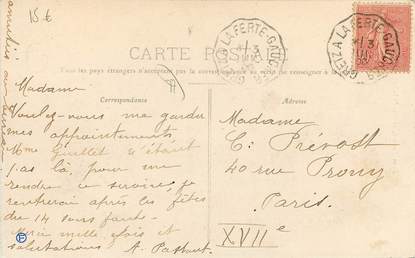 15 €
GRETZ A LA FERTE-GAUC
CARTE POSTALE
Tous les pays étrangers n'acceptent pas la correspondance au recto se renseigner à la
Correspondance
Adresse
Madame
Voulez-vous me garder
mes appointements
Mme Guillet n'étant
pas là, pour me
rendre ce service je
rentrerai après les fêtes
du 14 sans faute
Merci mille fois et
salutations A.
Madame
C. Prévost
40 rue Prony
Paris
XVIIe
GRETZ A LA FERTE-GAUC